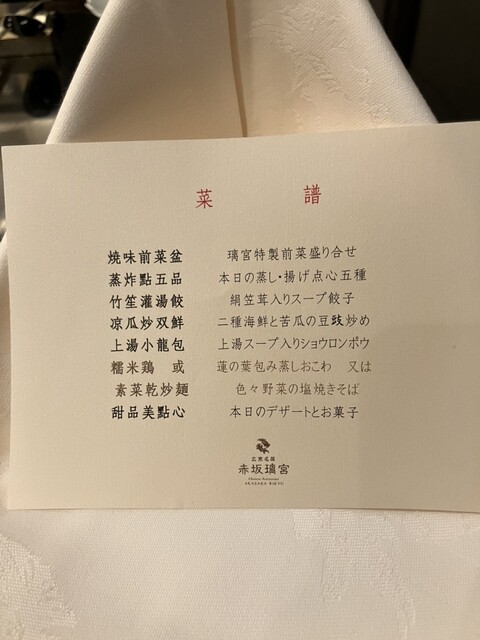 菜 譜
燒味前菜盆 璃宮特製前菜盛り合せ
蒸炸點五品 本日の蒸し・揚げ点心五種
竹笙灌湯餃 絹笠茸入りスープ餃子
凉瓜炒双鮮 二種海鮮と苦瓜の豆豉炒め
上湯小龍包 上湯スープ入りショウロンポウ
糯米鶏 或 蓮の葉包み蒸しおこわ 又は
素菜乾炒麺 色々野菜の塩焼きそば
甜品美點心 本日のデザートとお菓子
赤坂璃宮